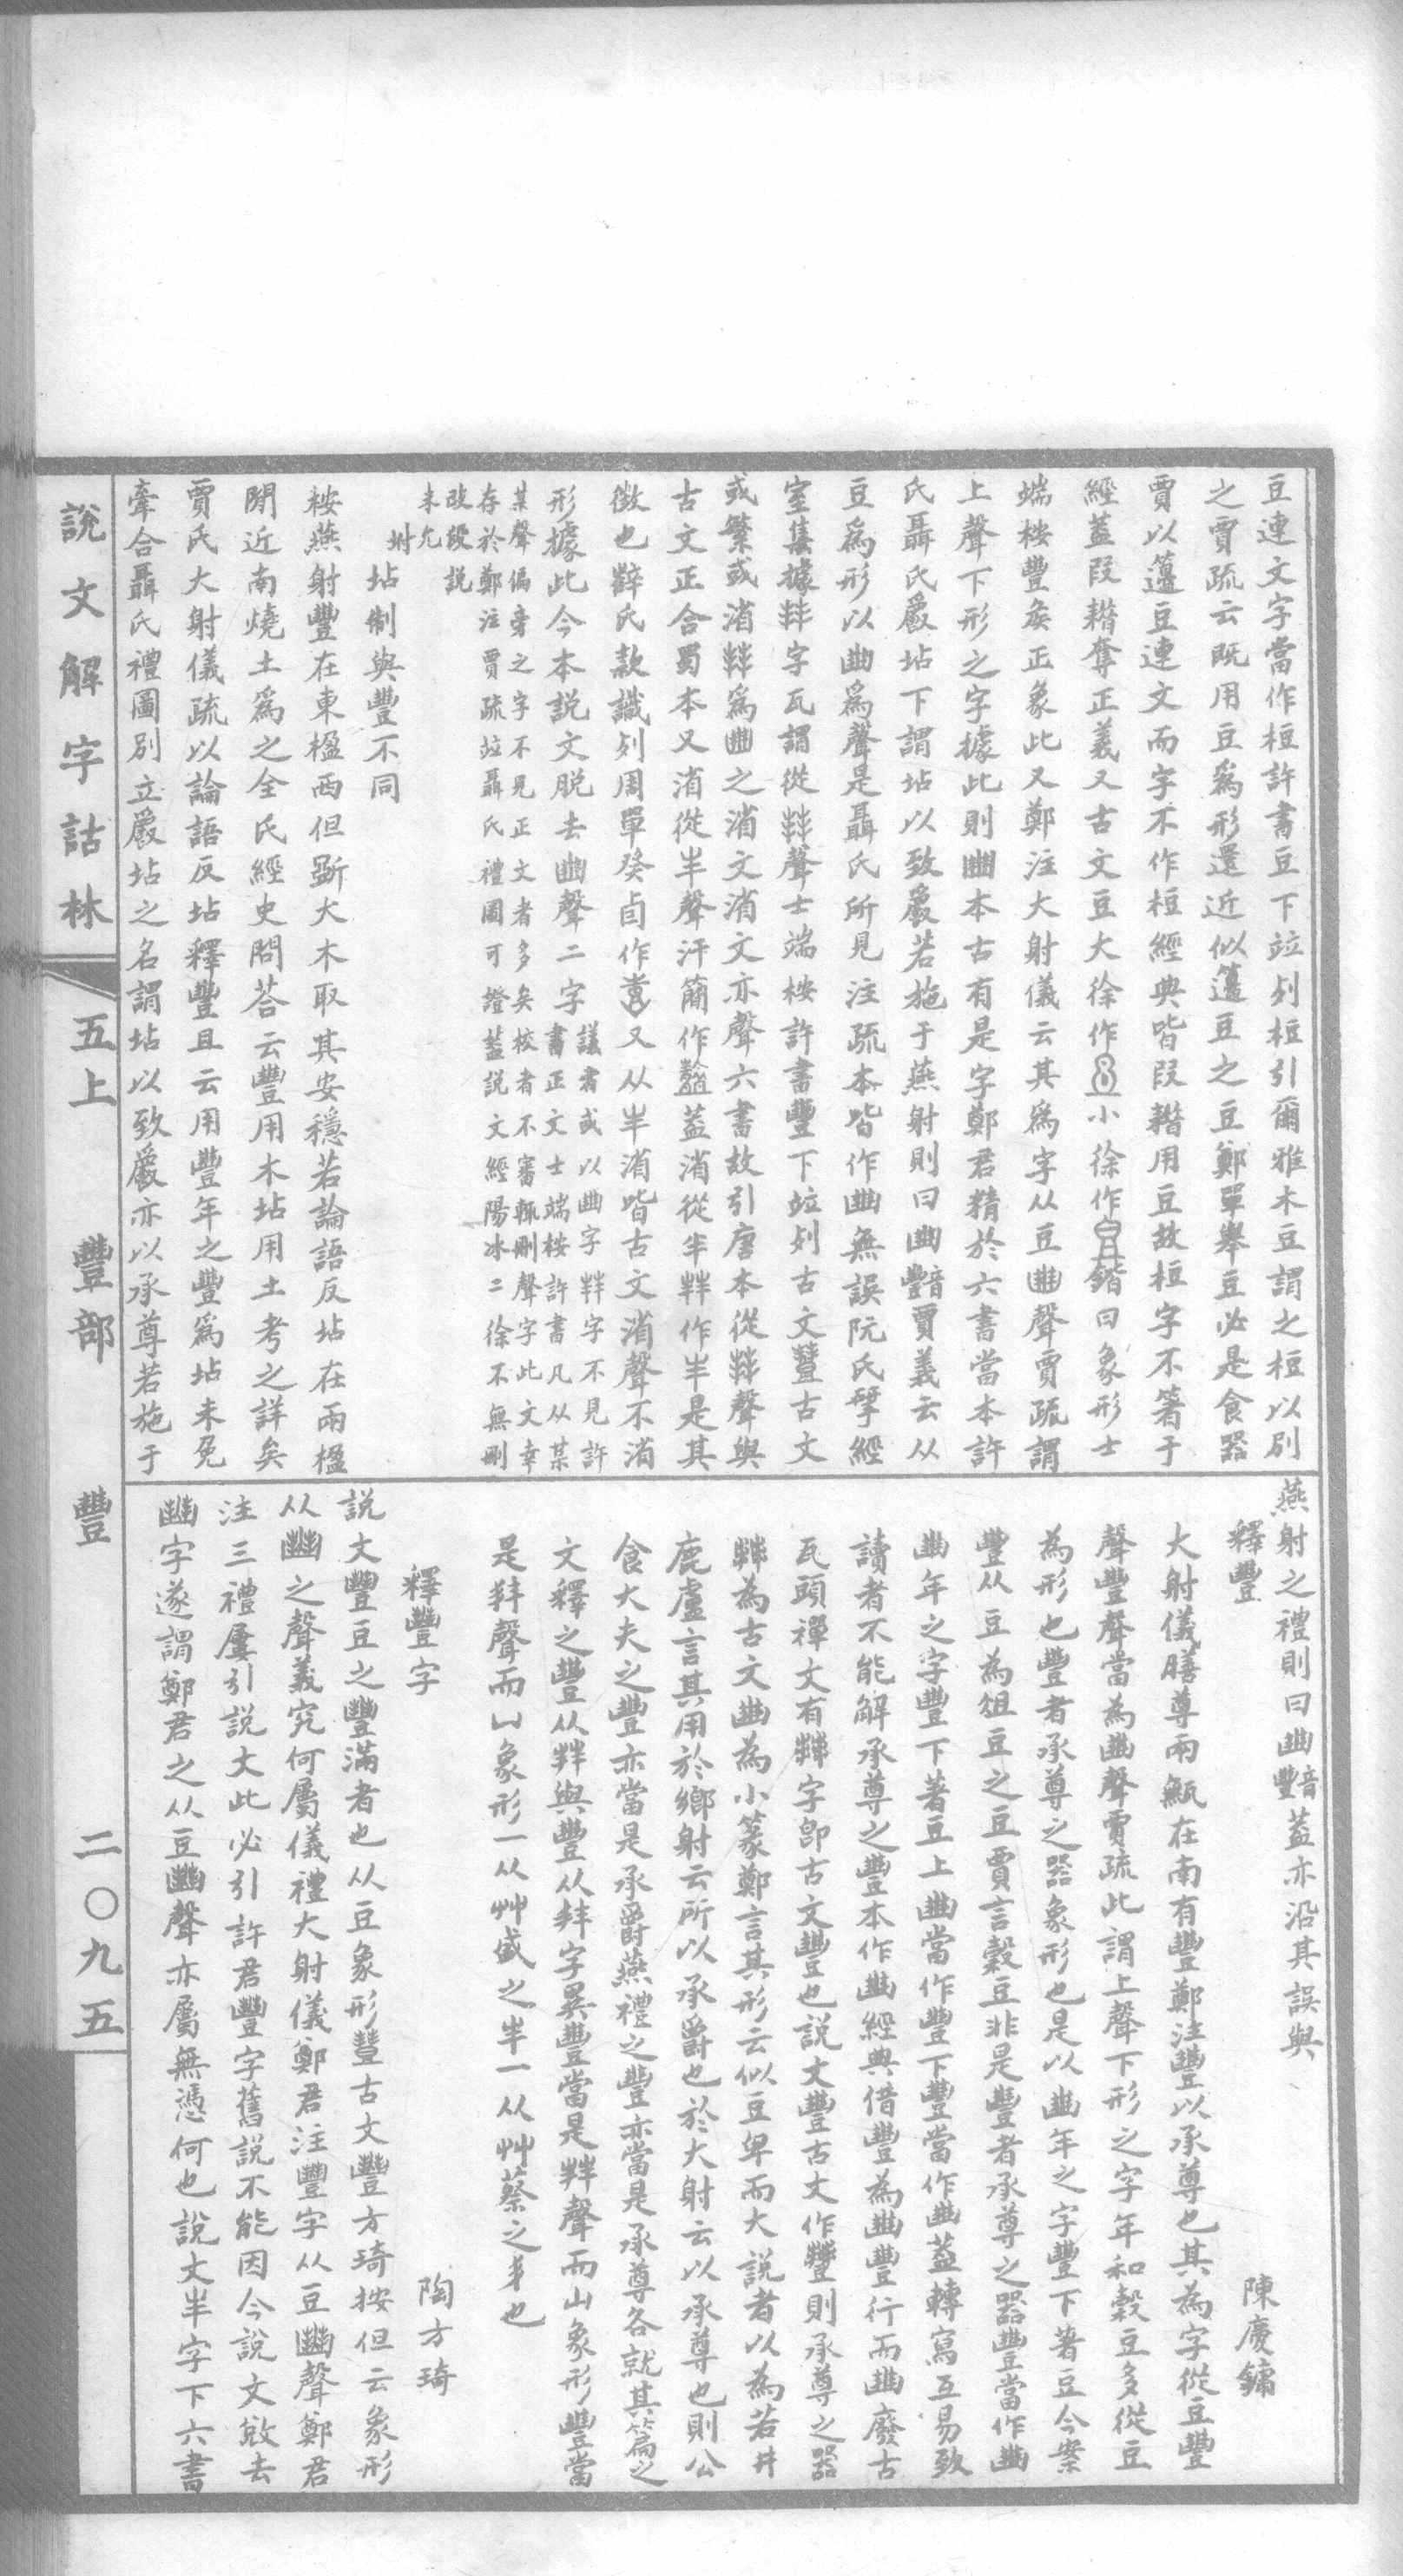 豆連文字當作梪許書豆下竝列梪引爾雅木豆謂之梪以別
之賈疏云既用豆爲形還近似籩豆之豆鄭單舉豆必是食器
賈以籩豆連文而字不作梪經典皆叚耤用豆故梪字不箸于
經蓋叚耤奪正義又古文豆大徐作小徐作鍇曰象形士
端桉豐矦正象此又鄭注大射儀云其爲字从豆𠁳聲賈疏謂
上聲下形之字據此則𠁳本古有是字鄭君精於六書當本許
氏聶氏嚴坫下謂坫以致嚴若施于燕射則曰𠁳賈義云从
豆爲形以𠁳爲聲是聶氏所見注疏本皆作𠁳無誤阮氏揅經
室集據字瓦謂從聲士端桉許書豐下竝列古文古文
或繁或渻爲𠁳之渻文渻文亦聲六書故引唐本從聲與
古文正合蜀本又渻從半聲汗簡作蓋渻從半作半是其
徵也薛氏款識列周單癸卣作又从半渻皆古文渻聲不渻
形據此今本說文脫去𠁳聲二字議者或以𠁳字字不見許書正文士端桉許書凡从某
某聲偏旁之字不見正文者多矣校者不審輒刪聲字此文幸
存於鄭注賈疏竝聶氏禮圖可證蓋說文經陽冰二徐不無刪
改段說
未允
坿坫制與豐不同
桉燕射豐在東楹西但斲大木取其安穩若論語反坫在兩楹
閒近南燒土爲之全氏經史問荅云豐用木坫用土考之詳矣
賈氏大射儀疏以論語反坫釋豐且云用豐年之豐爲坫未免
牽合聶氏禮圖別立嚴坫之名謂坫以致嚴亦以承尊若施于
燕射之禮則曰𠁳蓋亦沿其誤與
釋豐 陳慶鏞
大射儀膳尊兩甒在南有豐鄭注豐以承尊也其為字從豆豐
聲豐聲當為𠁳聲賈疏此謂上聲下形之字年和穀豆多從豆
為形也豐者承尊之器象形也是以𠁳年之字豐下著豆今案
豐从豆為俎豆之豆賈言穀豆非是豐者承尊之器豐當作𠁳
𠁳年之字豐下著豆上𠁳當作豐下豐當作𠁳蓋轉寫互易致
讀者不能解承尊之豐本作𠁳經典借豐為𠁳豐行而𠁳廢古
瓦頭禪文有字卽古文豐也說文豐古文作則承尊之器
為古文𠁳為小篆鄭言其形云似豆卑而大說者以為若井
鹿盧言其用於鄉射云所以承爵也於大射云以承尊也則公
食大夫之豐亦當是承爵燕禮之豐亦當是承尊各就其篇之
文釋之豐从與豐从字異豐當是聲而山象形豐當
是聲而凵象形一从艸盛之丰一从艸蔡之丯也
釋豐字 陶方琦
說文豐豆之豐滿者也从豆象形古文豐方琦按但云象形
从𠁳之聲義究何屬儀禮大射儀鄭君注豐字从豆𠁳聲鄭君
注三禮屢引說文此必引許君豐字舊說不能因今說文敚去
𠁳字遂謂鄭君之从豆𠁳聲亦屬無憑何也說文半字下六書
說文解字詁林 五上 豐部 豐 二〇九五